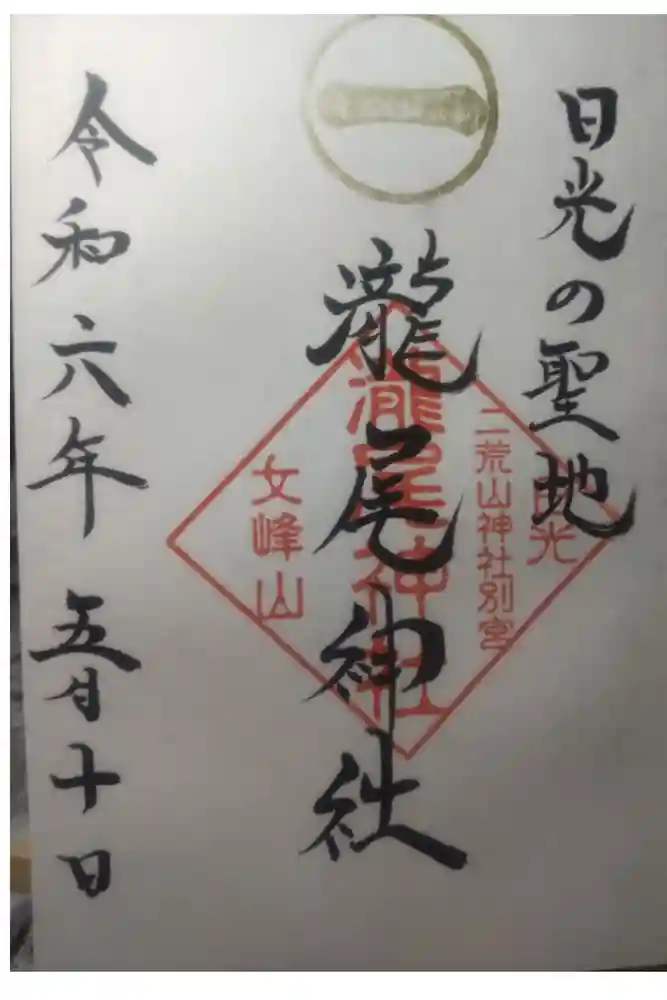 日光の聖地
一
瀧尾神社
日光
二荒山神社別宮
瀧尾神社
女峰山
令和六年五月十日